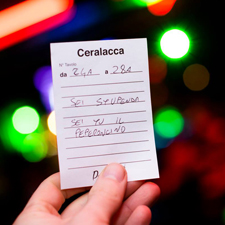 Ceralacca
N° Tavolo
da 24A a 28A
SEI STUPENDA
SEI TU IL
PEPERONCINO